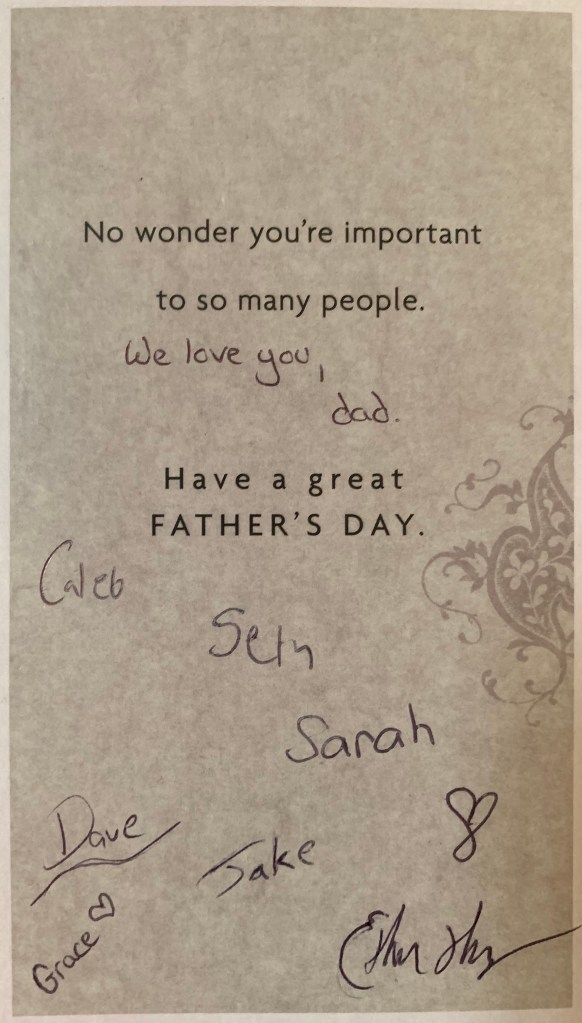 No wonder you're important
to so many people.
We love you,
dad.
Have a great
FATHER'S DAY.
Caleb
Seth
Sarah
Dave
Jake
Grace